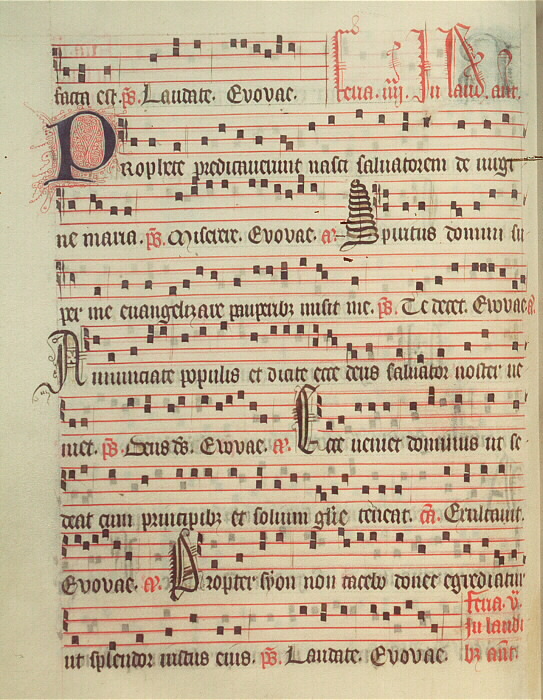 facta est. ps. Laudate. Evovae. Feria. iiij. In laud. ant.
Prophete predicaverunt nasci salvatorem de virgi
ne maria. ps. Miserere. Evovae. a. Spiritus domini su
per me euangelizare pauperibz misit me. ps. Te decet. Evovae. a.
Annunciate populis et dicite ecce deus salvator noster ve
niet. ps. Deus ds. Evovae. a. Ecce veniet dominus ut se
deat cum principibz et solium glie teneat. ca. Exultavit.
Evovae. a. Propter syon non tacebo donec egrediatur
ut splendor iustus eius. ps. Laudate. Evovae. Feria. v.
In laudi
bz ant.